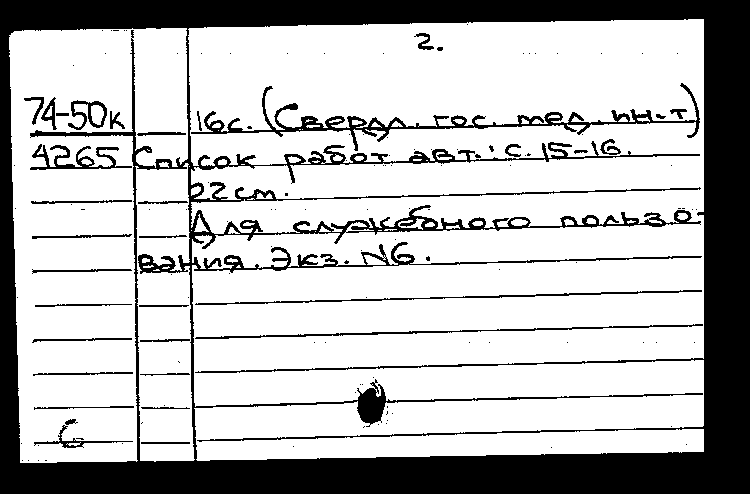 2.
74-50к 16с. (Свердл. гос. мед. ин-т)
4265 Список работ авт.: с. 15-16.
22см.
Для служебного пользо-
вания. Экз. N6.
6